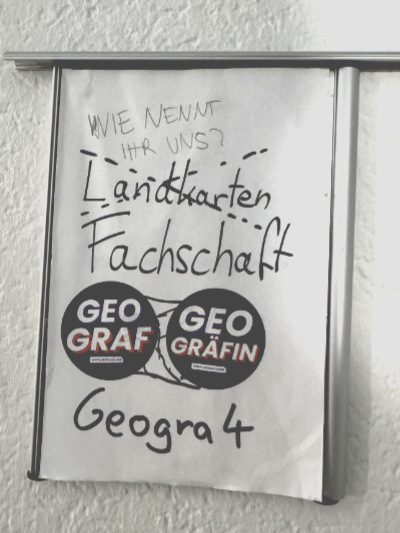 WIE NENNT
IHR UNS?
Landkarten
Fachschaft
GEO
GRAF
GEO
GRÄFIN
Geogra4